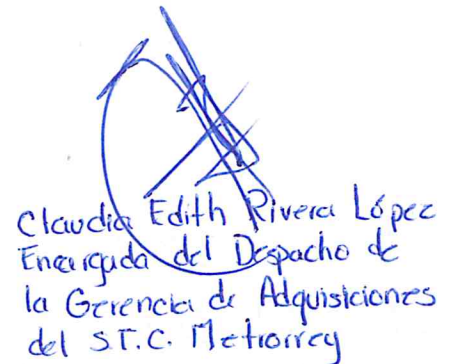 Claudia Edith Rivera López
Encargada del Despacho de
la Gerencia de Adquisiciones
del S.T.C. Metrorrey